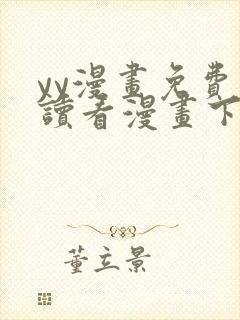 yy漫畫免費
讀看漫畫下
董立景